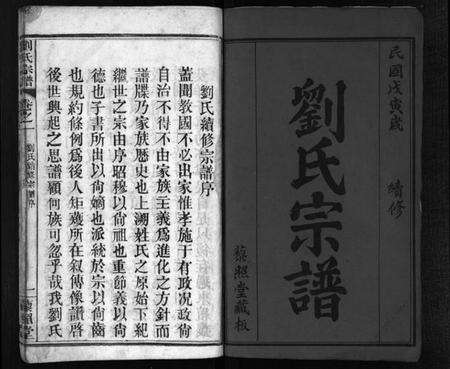 民國戊寅歲
續修
劉氏宗譜
藜照堂藏板
劉氏續修宗譜序
蓋聞教國不必出家惟孝施于有政况政尚
自治不得不由家族主義為進化之方針而
譜牒乃家族歷史也上溯姓氏之原始下紀
繼世之宗由序昭穆以尚祖也重節義以尚
德也子書所出以尚嫡也派統於宗以尚齒
也規約條例為後人矩矱所在叙傳像讚啓
後世興起之思譜顧何族可忽乎哉我劉氏
劉氏宗譜
卷之一
劉氏續修宗譜序
一
藜照堂